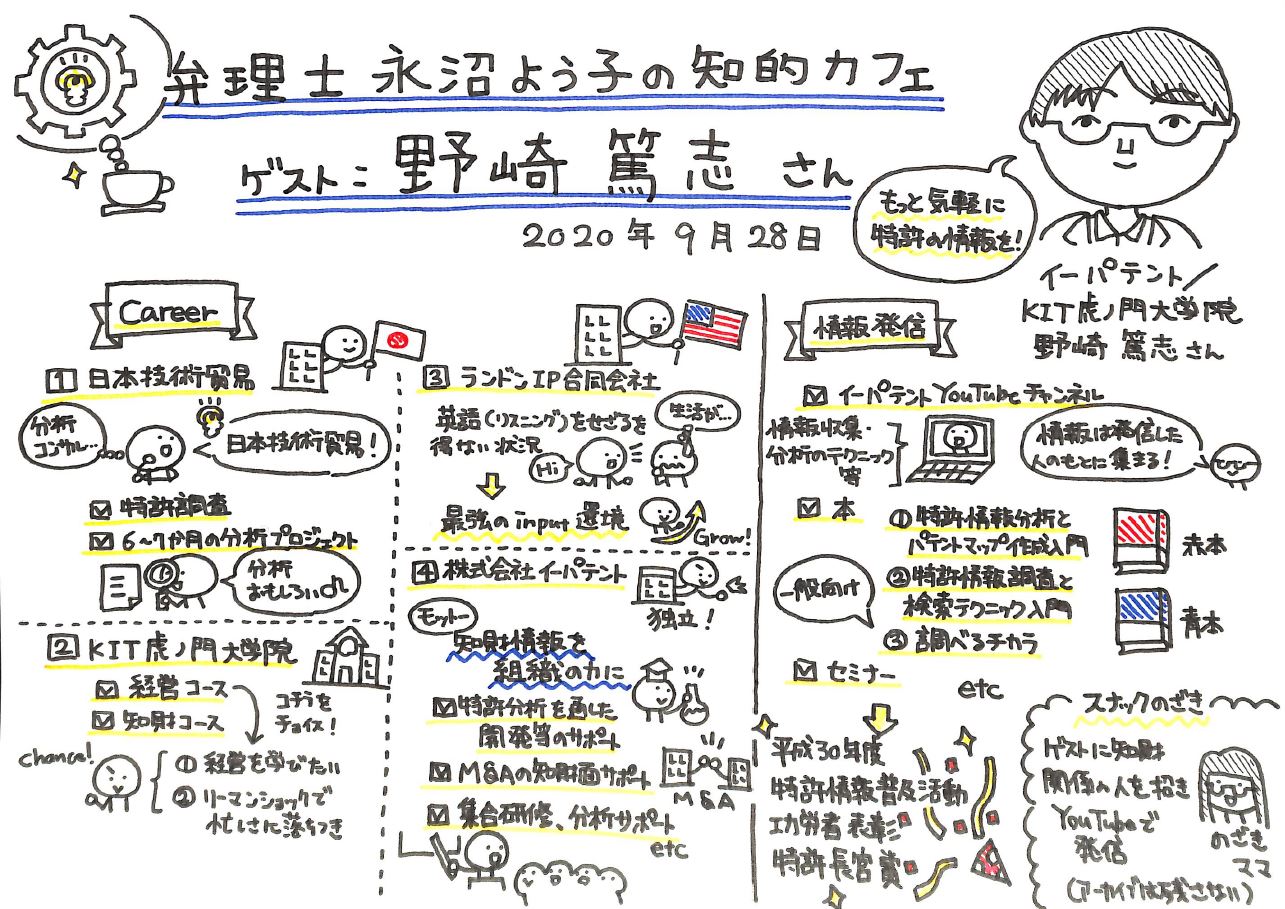 弁理士 永沼よう子の知的カフェ
ゲスト: 野崎 篤志 さん
2020年9月28日
もっと気軽に
特許の情報を!
イーパテント/
KIT虎ノ門大学院
野崎 篤志さん
Career
1 日本技術貿易
分析
コンサル…
日本技術貿易!
特許調査
6~7か月の分析プロジェクト
分析
おもしろい♫
2 KIT虎ノ門大学院
経営コース
知財コース
コチラを
チョイス!
chance!
① 経営を学びたい
② リーマンショックで
忙しさに落ちつき
3 ランドンIP合同会社
英語(リスニング)をせざるを
得ない状況
生活が…
Hi
最強のinput環境
Grow!
4 株式会社イーパテント
独立!
モットー
知財情報を
組織の力に
特許分析を通した
開発等のサポート
M&Aの知財面サポート
M&A
集合研修、分析サポート
etc
情報発信
イーパテントYouTubeチャンネル
情報収集・
分析のテクニック
等
情報は発信した
人のもとに集まる!
本
①特許情報分析と
パテントマップ作成入門
赤本
②特許情報調査と
検索テクニック入門
青本
一般向け
③調べるチカラ
セミナー
etc
平成30年度
特許情報普及活動
功労者表彰
特許長官賞
スナックのざき
ゲストに知財
関係の人を招き
YouTubeで
発信
(アーカイブは残さない)
のざき
ママ